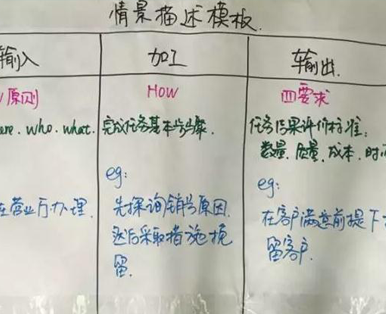 情景描述模板
输入 加工 输出
原则 How 四要求
ere. who. what. 完成任务基本步骤. 任务结果评价标准:
数量. 质量. 成本. 时
eg: eg:
在营业厅办理. 先探询销号原因 在客户满意前提下
然后采取措施挽 留客户.
留.